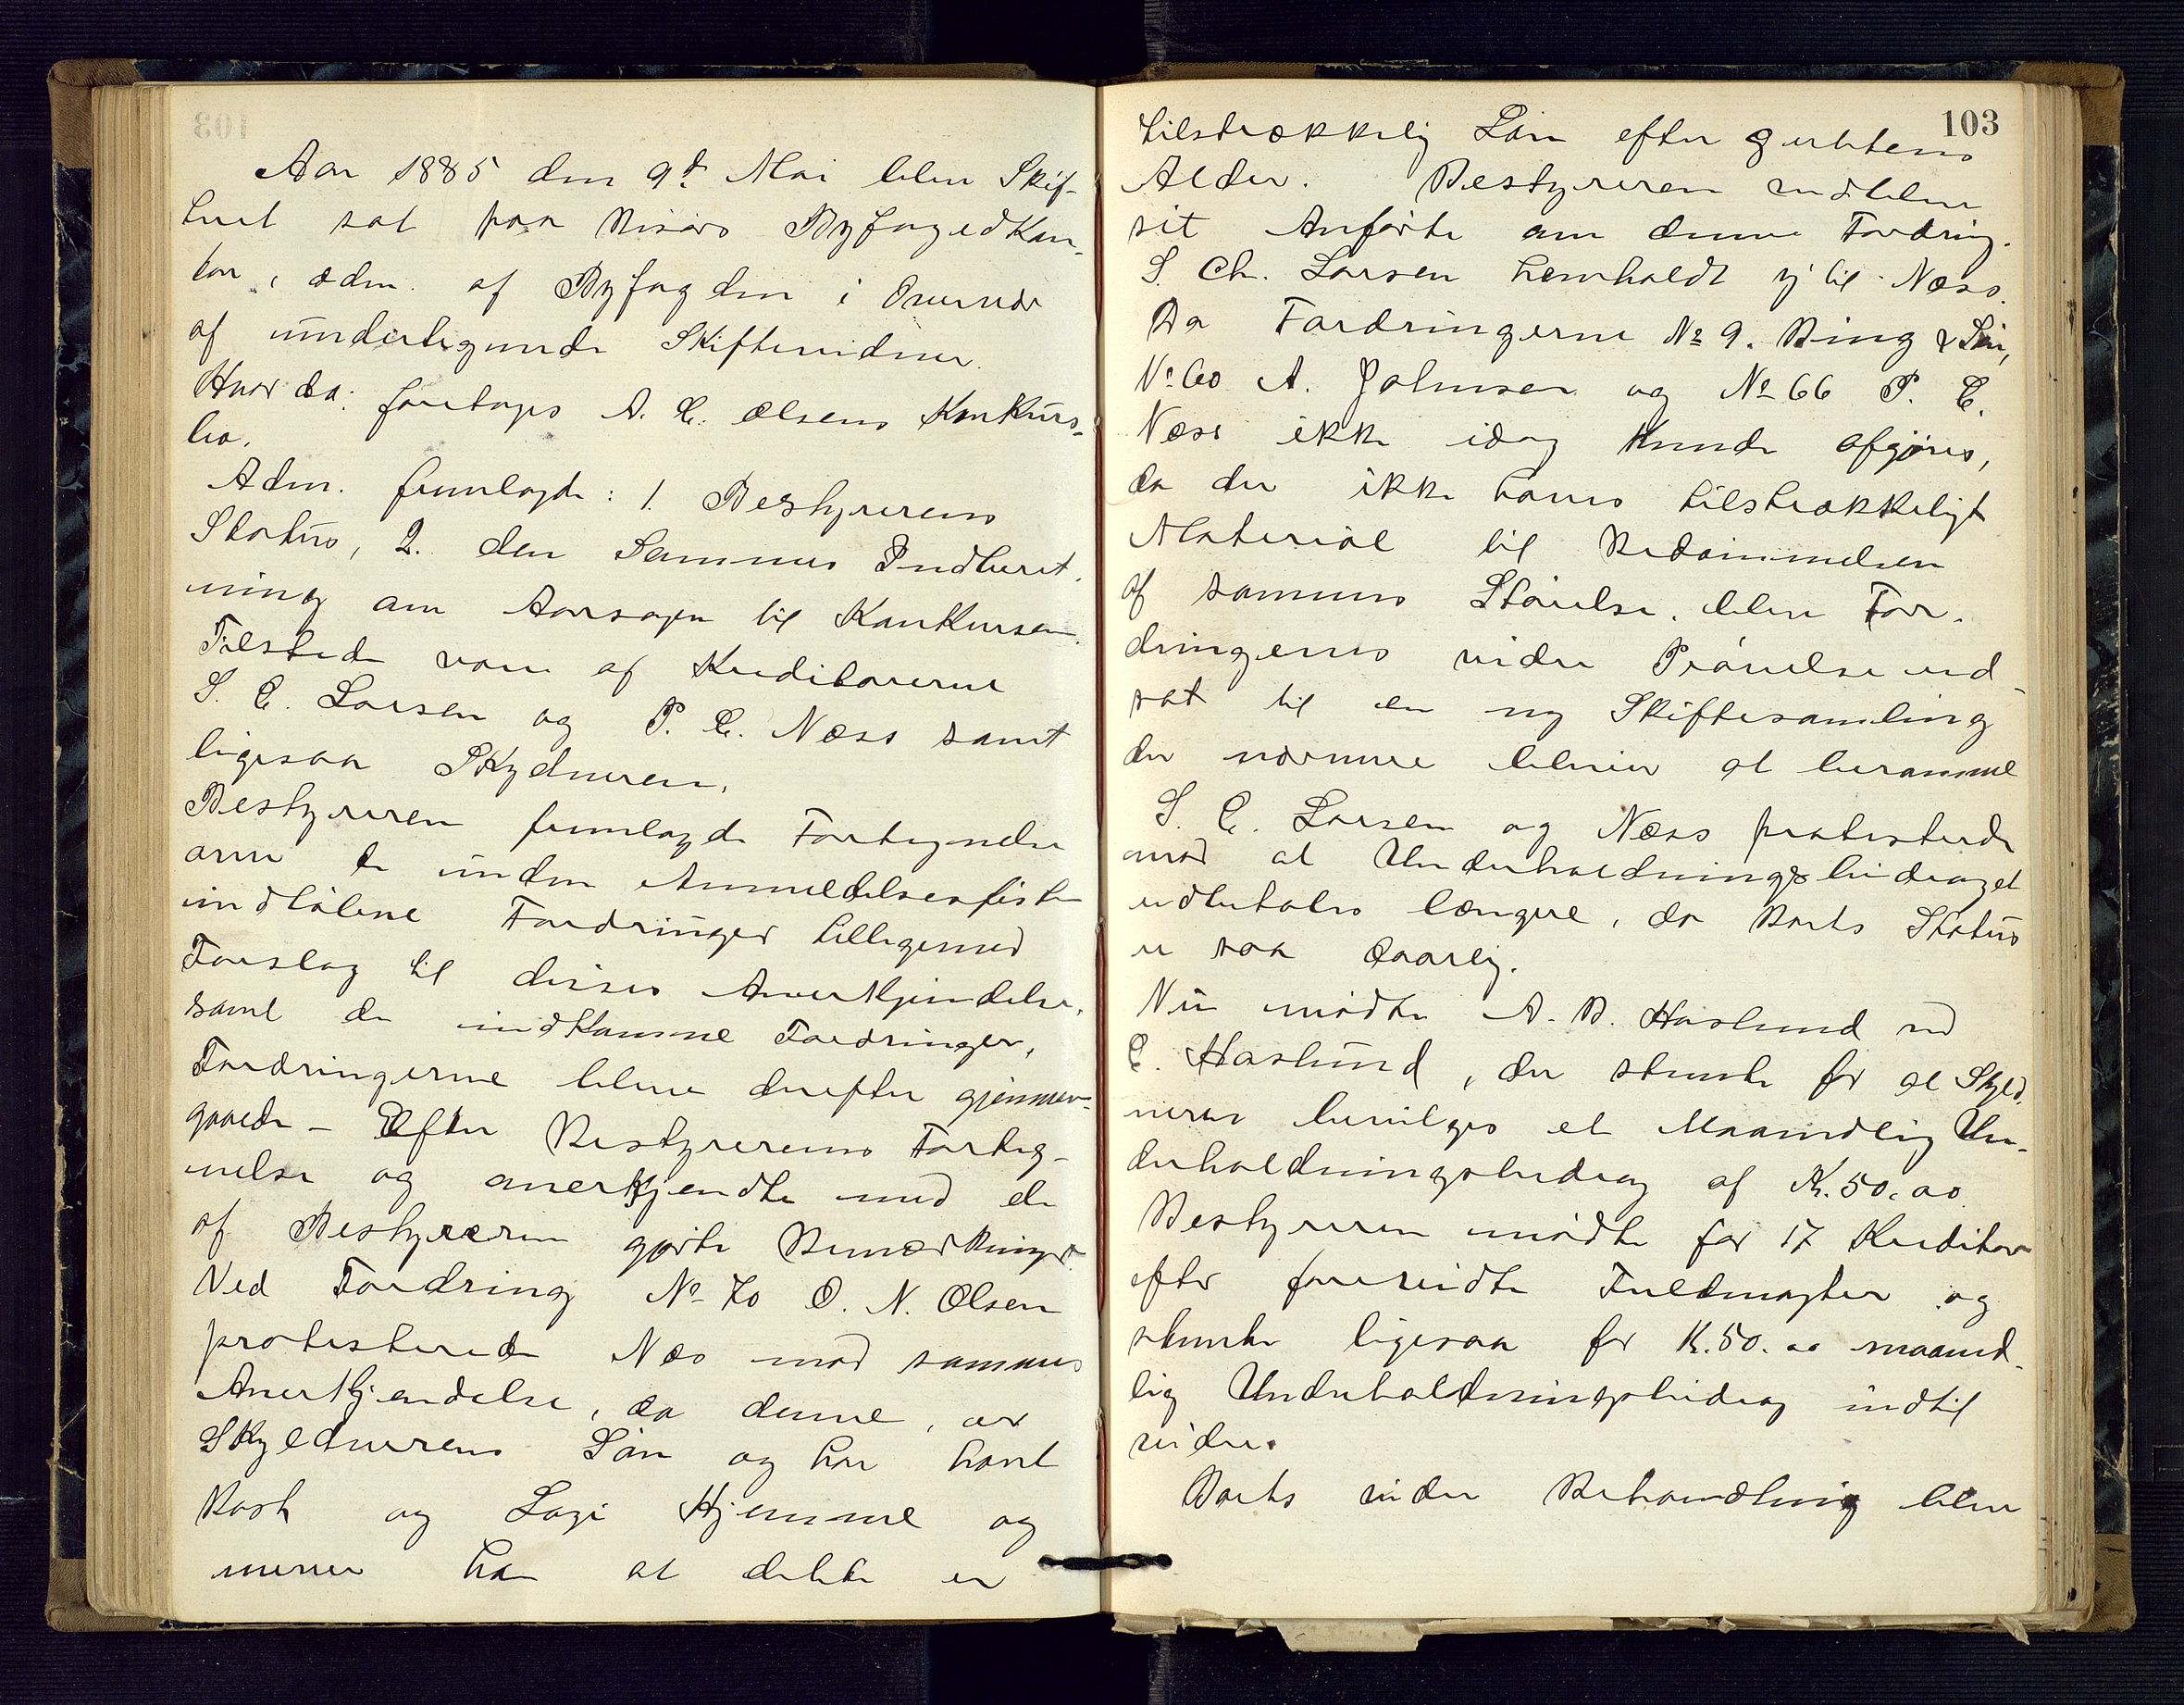 Aar 1885 den 9d. Mai blev Skif-
teret sat paa Risørs Byfogedkon-
tor, adm. af Byfogden i Overvær
af undertegnede Skiftevidner.
Hvor da: foretoges A. C. Olsens Konkurs-
bo.
Adm. fremlagde: 1. Bestyrerens
Status, 2. den Sammes Indberet-
ning om Aarsagen til Konkursen.
Tilstede vare af Kreditorerne
S. C. Larsen og P. C. Næss samt
ligesaa Skyldneren.
Bestyreren fremlagde Fortegnelse
over de inden Anmeldelsesfristen
indløbne Fordringer tilligemed
Forslag til disses Anerkjendelse,
samt de indkomne Fordringer.
Fordringerne bleve derefter gjennem-
gaaede - Efter Bestyrerens Forteg-
nelse og anerkjendte med de
af Bestyreren gjorte Bemærkninger.
Ved Fordring No 70 O. N. Olsen
protesterede Næs mod sammes
Anerkjendelse, da denne, er
Skyldnerens Søn og har havt
Kost og Logi Hjemme og
mener han at dette er
103
tilstrækkelig Løn efter Guttens
Alder. Bestyreren vedblev
sit Anførte om denne Fordring.
S. Ch. Larsen henholdt sig til Næss.
Da Fordringerne No 9. Ring & Søn,
No 60 A. Johnsen og No 66 P. C.
Næss ikke idag kunde afgjøres,
da der ikke haves tilstrækkeligt
Material til Bedømmelsen
af sammes Størrelse, blev For-
dringenes videre Prøvelse ud-
sat til en ny Skiftesamling
der nærmere bliver at beramme
S. C. Larsen og Næss protesterede
mod at Underholdningsbidraget
udbetales længere, da Boets Status
er saa daarlig.
Nu mødte A. B. Haslund ved
C. Haslund, der stemte for at Skyld-
neren bevilges et Maanedlig Un-
derholdningsbidrag af K. 50.00
Bestyreren mødte for 17 Kreditorer
efter foreviste Fuldmagter og
stemte ligesaa for K. 50.00 maaned-
lig Underholdningsbidrag indtil
videre.
Boets videre Behandling blev